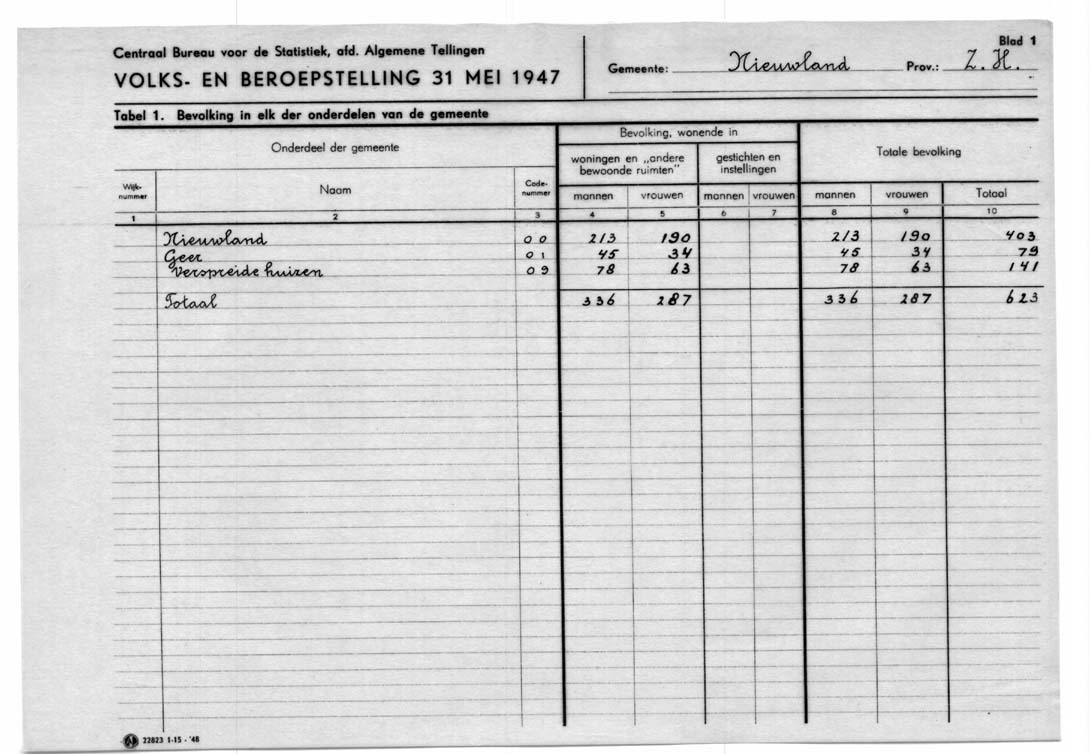 Blad 1
Centraal Bureau voor de Statistiek, afd. Algemene Tellingen
VOLKS- EN BEROEPSTELLING 31 MEI 1947
Gemeente: Nieuwland Prov.: Z. H.
Tabel 1. Bevolking in elk der onderdelen van de gemeente
Onderdeel der gemeente
Bevolking, wonende in
Totale bevolking
woningen en „andere bewoonde ruimten"
gestichten en instellingen
Wijk-nummer Naam Code-nummer mannen vrouwen mannen vrouwen mannen vrouwen Totaal
1 2 3 4 5 6 7 8 9 10
Nieuwland 00 213 190 213 190 403
Geer 01 45 34 45 34 79
Verspreide huizen 09 78 63 78 63 141
Totaal 336 287 336 287 623
22823 1-15 - '48